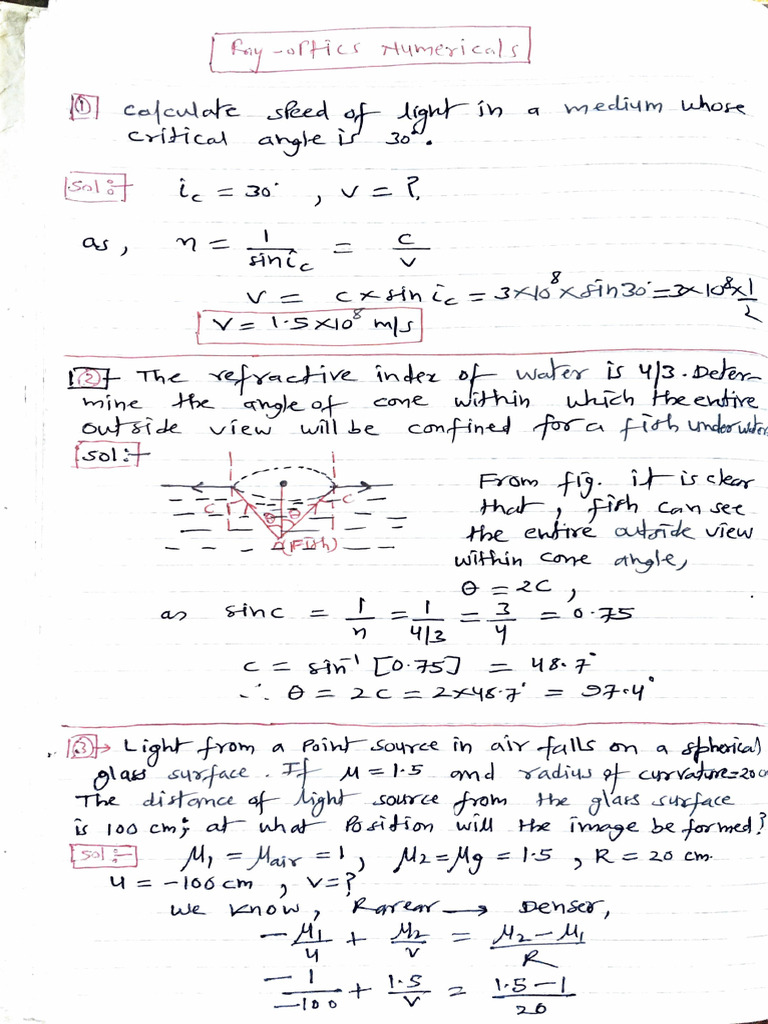 Ray-optics Numericals
① Calculate speed of light in a medium whose
critical angle is 30°.
Sol:- i_c = 30° , v = ?
as, n = 1/sin i_c = c/v
v = c × sin i_c = 3×10⁸ × sin30° = 3×10⁸ × 1/2
V = 1.5×10⁸ m/s
② The refractive index of water is 4/3. Deter-
mine the angle of cone within which the entire
outside view will be confined for a fish underwater
Sol:-
C θ θ C
(Fish)
From fig. it is clear
that, fish can see
the entire outside view
within cone angle,
θ = 2C,
as sinc = 1/n = 1/4/3 = 3/4 = 0.75
c = sin⁻¹ [0.75] = 48.7°
∴ θ = 2C = 2×48.7° = 97.4°
③→ Light from a point source in air falls on a spherical
glass surface. If μ = 1.5 and radius of curvature = 20 cm
The distance of light source from the glass surface
is 100 cm; at what Position will the image be formed?
Sol:- μ₁ = μair = 1, μ₂ = μg = 1.5 , R = 20 cm.
u = -100 cm , v = ?
We know, Rarear → Denser,
-μ₁/u + μ₂/v = μ₂-μ₁/R
-1/-100 + 1.5/v = 1.5-1/20